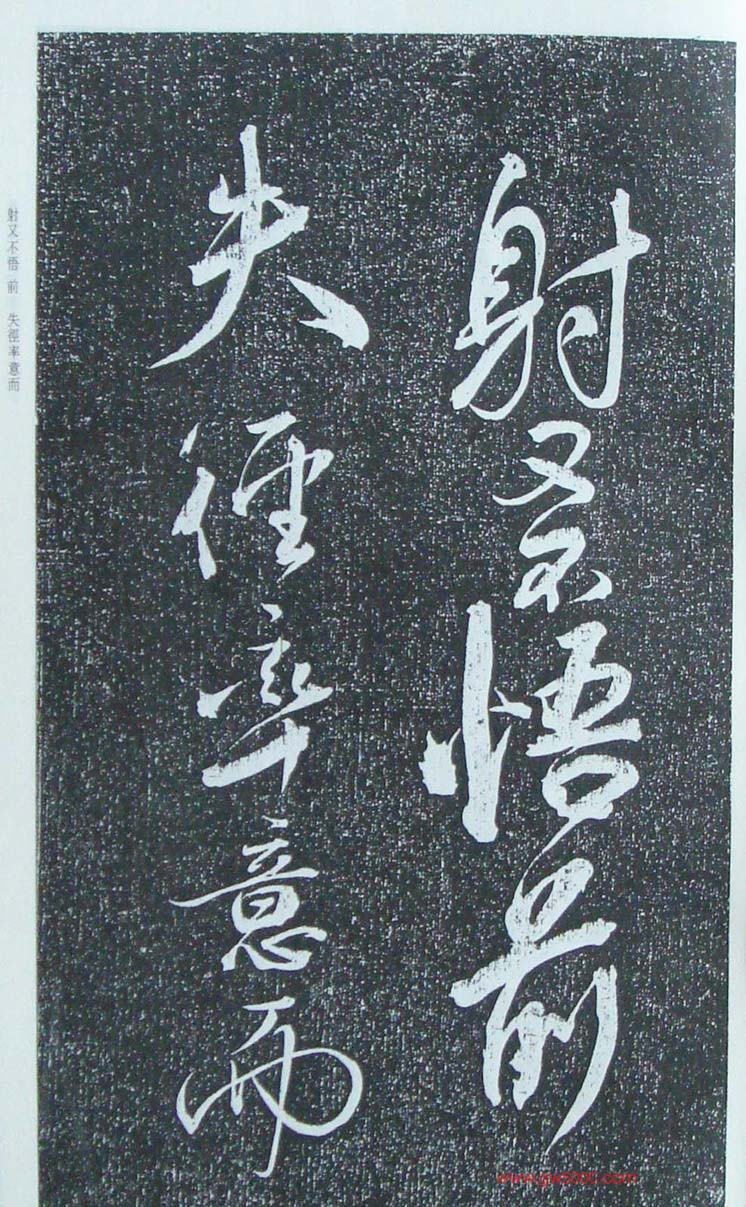 射又不悟前
失徑率意而
射又不悟 前 失徑率意而
www.gw5000.com